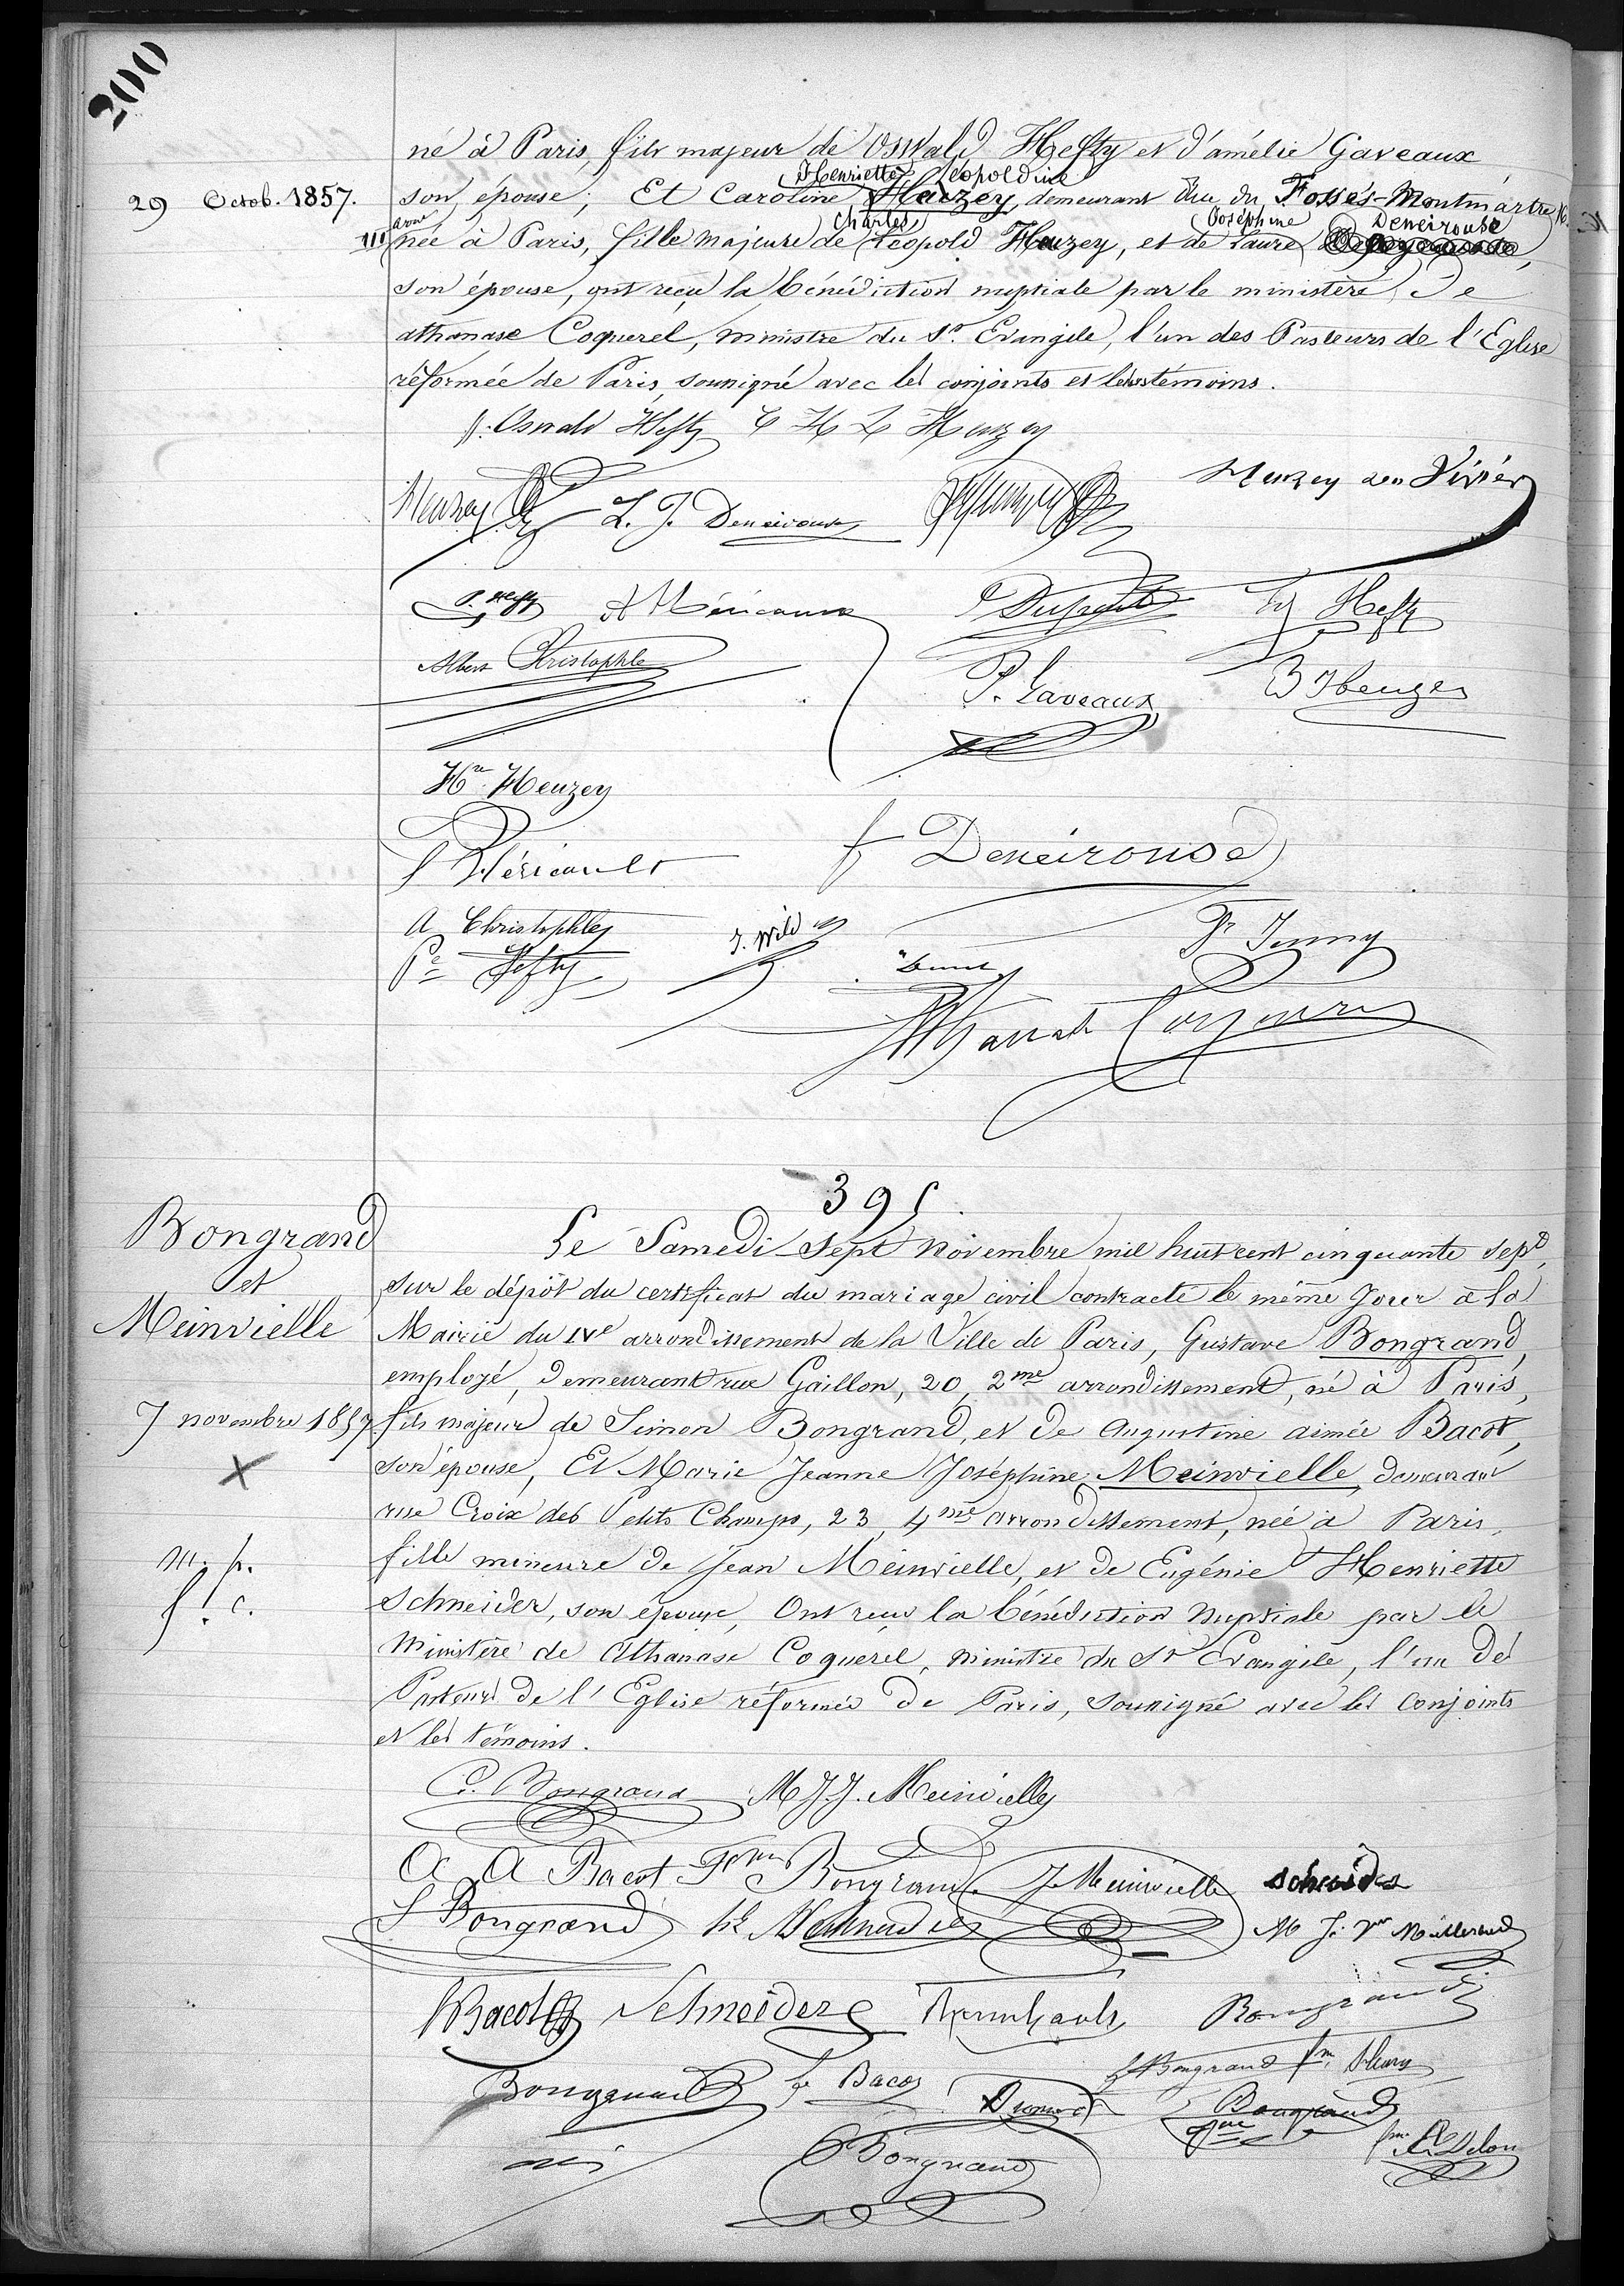 200
né à Paris, fils majeur de Oswald Hefty et d'amélie Gaveaux
Henriette Léopoldine
29 Octob. 1857.
son épouse; Et Caroline Heuzey, demeurant rue du Fossés-Montmartre, 16.
arrt Charles Joséphine Deneirouse
III née à Paris, fille majeure de Léopold Heuzey, et de Laure
son épouse, ont reçu la bénédiction nuptiale par le ministère de
athanase Coquerel, ministre du St. Evangile, l'un des Pasteurs de l'Eglise
réformée de Paris, soussigné avec les conjoints et les témoins.
Oswald Hefty C H L Heuzey
Heuzey L. J. Deneirouse Heuzey née Vivier
P. Hefty Hefty
Albert Christophle P. Gaveaux B Heuzey
Hte Heuzey
Héricault f Deneirouse
A Christophle J. Wild F Jenny
Pe Hefty
Athanase Coquerel
395.
Bongrand
et
Meinvielle
7 novembre 1857
X
m. p.
f. c.
Le Samedi Sept Novembre mil huit cent cinquante sept,
sur le dépôt du certificat du mariage civil contracté le même Jour à la
Mairie du IVe arrondissement de la Ville de Paris, Gustave Bongrand,
employé, demeurant rue Gaillon, 20, 2me arrondissement, né à Paris,
fils majeur de Simon Bongrand, et de Augustine aimée Bacot,
son épouse, Et Marie Jeanne Joséphine Meinvielle, demeurant
rue Croix des Petits Champs, 23, 4me arrondissement, née à Paris,
fille mineure de Jean Meinvielle, et de Eugénie Henriette
Schneider, son épouse, Ont reçu la bénédiction nuptiale par le
Ministère de Athanase Coquerel, ministre du St Evangile, l'un des
Pasteurs de l'Eglise réformée de Paris, soussigné avec les conjoints
et les témoins.
G. Bongrand M J. J. Meinvielle
A A Bacot Fme Bongrand J. Meinvielle Schneider
S Bongrand M J.
Bacot Schneider Bongrand
Bongrand Bacot Bongrand fme Fleury
Bongrand
Bongrand fme Delon